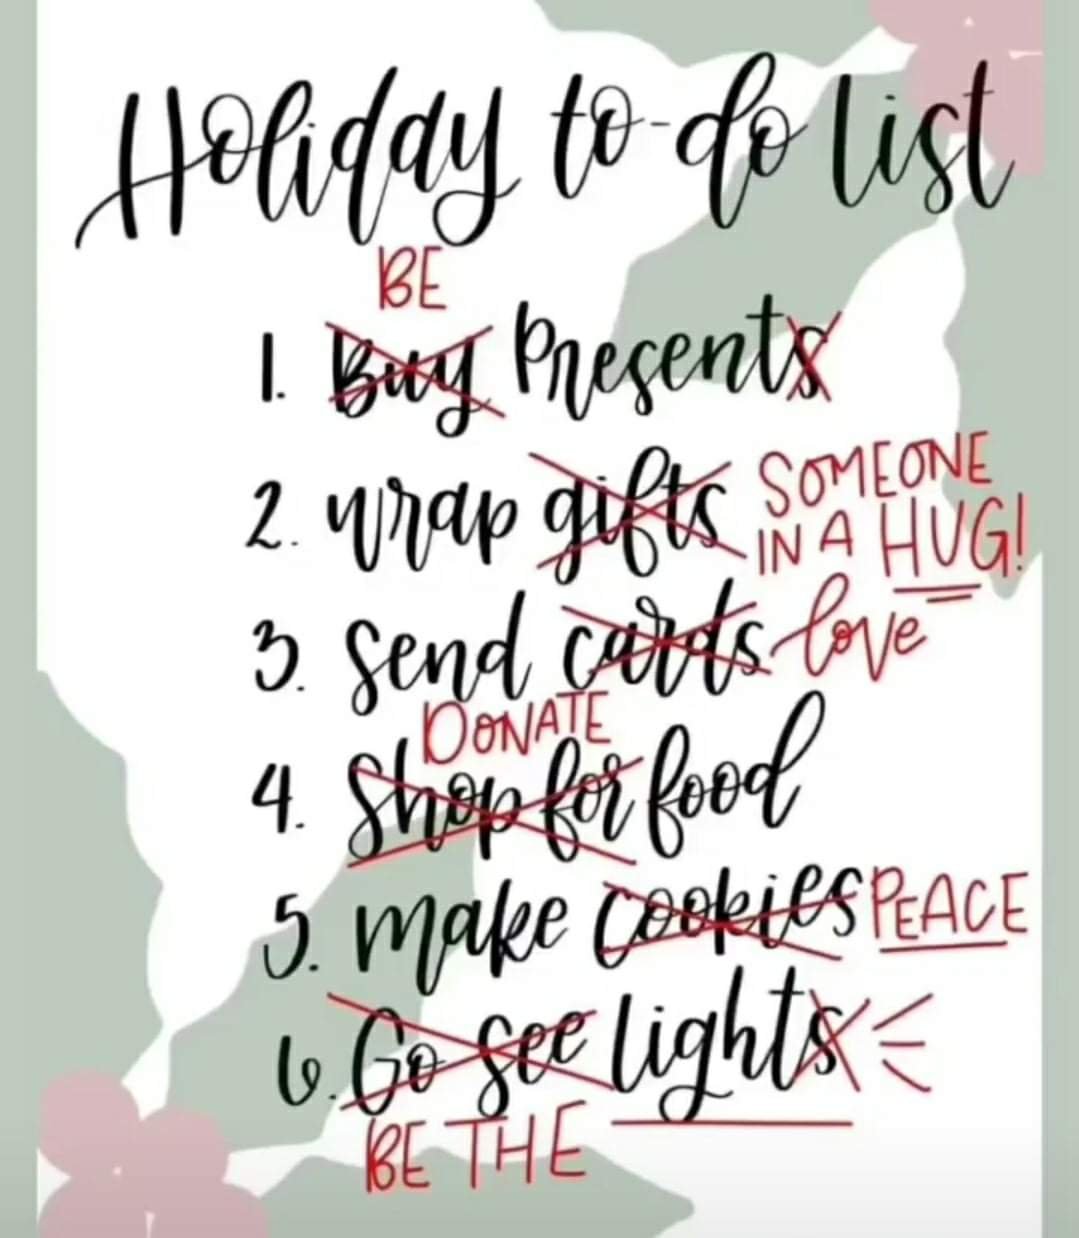 Holiday to-do list
BE
1. Buy Presents
2. wrap gifts SOMEONE
IN A HUG!
3. Send cards love
DONATE
4. Shop for food
5. make cookies PEACE
6. Go see lights
BE THE